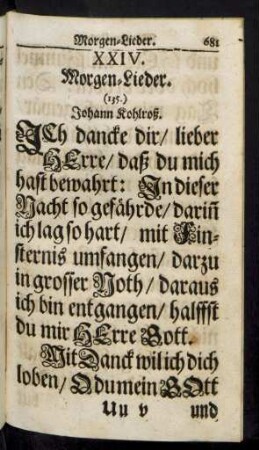 Morgen-Lieder. 681
XXIV.
Morgen-Lieder.
(135.)
Johann Kohlroß.
ICh dancke dir/ lieber
HErre/ daß du mich
hast bewahrt: In dieser
Nacht so gefährde/ dariñ
ich lag so hart/ mit Fin-
sternis umfangen/ darzu
in grosser Noth/ daraus
ich bin entgangen/ halffst
du mir HErre Gott.
Mit Danck wil ich dich
loben/ O du mein GOtt
Uu v und